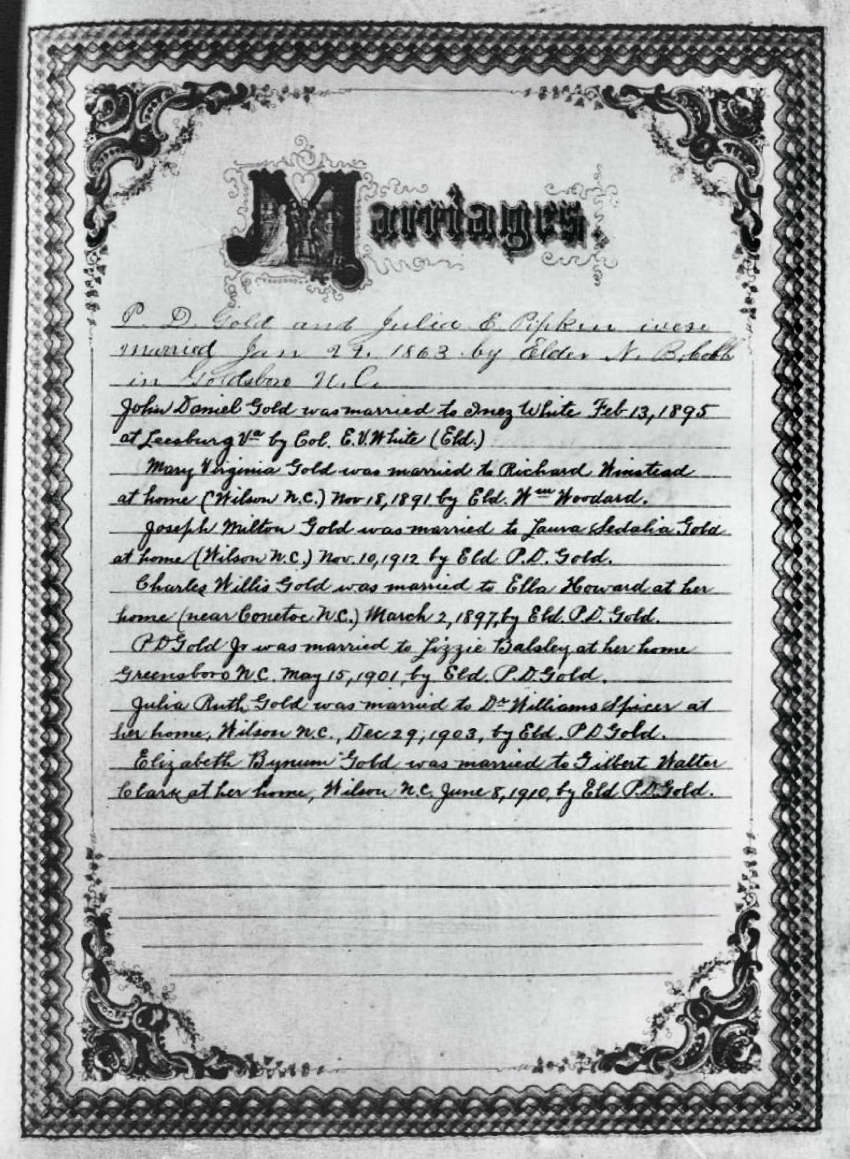 Marriages.
P. D. Gold and Julia E. Pipkin were
married Jan 29. 1863 by Elder N. B. Cobb
in Goldsboro N.C.
John Daniel Gold was married to Inez White Feb 13, 1895
at Leesburg Va by Col. E.V. White (Eld.)
Mary Virginia Gold was married to Richard Winstead
at home (Wilson N.C.) Nov 18, 1891 by Eld. Wm Woodard.
Joseph Milton Gold was married to Laura Sedalia Gold
at home (Wilson N.C.) Nov. 10, 1912 by Eld P.D. Gold.
Charles Willis Gold was married to Ella Howard at her
home (near Conetoe N.C.) March 2, 1897, by Eld. P.D. Gold.
P D Gold Jr was married to Lizzie Balsley at her home
Greensboro N.C. May 15, 1901, by Eld. P.D. Gold.
Julia Ruth Gold was married to Dr Williams Spicer at
her home, Wilson N.C., Dec 29, 1903, by Eld. P D Gold.
Elizabeth Bynum Gold was married to Gilbert Walter
Clark at her home, Wilson N.C. June 8, 1910, by Eld P.D. Gold.